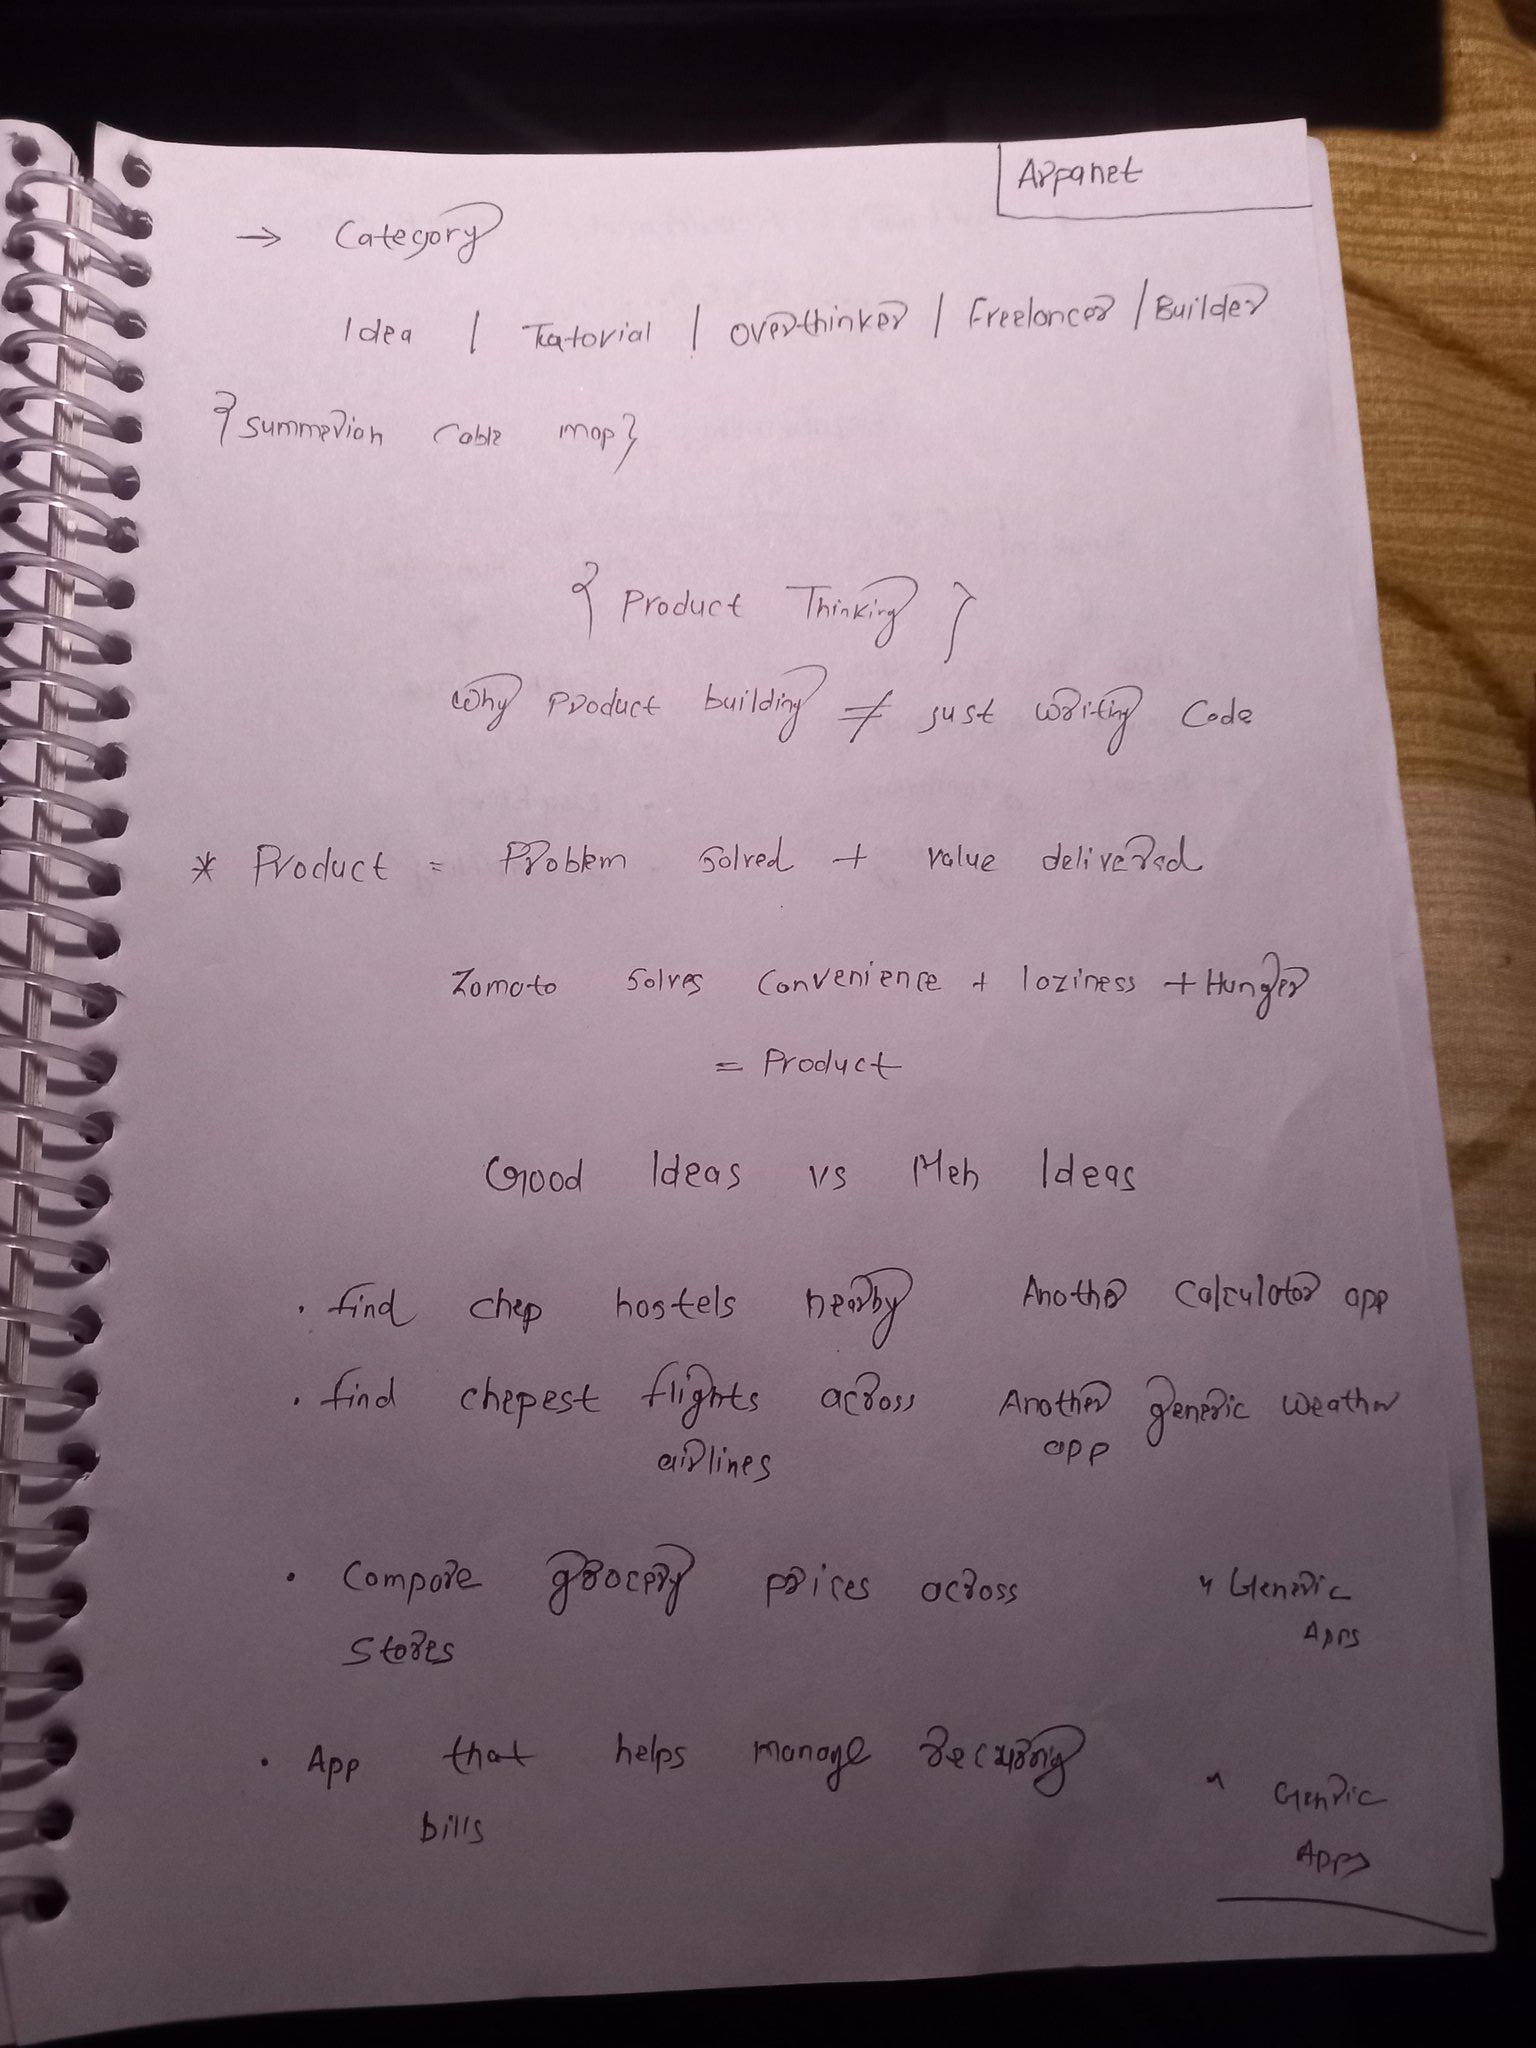 Arpanet
→ Category
Idea | Tutorial | Overthinker | Freelancer | Builder
{ Summerian Cable map }
{ Product Thinking }
Why Product building ≠ just writing Code
* Product = Problem solved + value delivered
Zomato solves convenience + laziness + Hunger
= Product
Good Ideas vs Meh Ideas
• find chep hostels nearby Another calculator app
• find chepest flights across Another generic weather
airlines app
• Compare grocery prices across " Generic
stores Apps
• App that helps manage recuring
bills " Genric
Apps